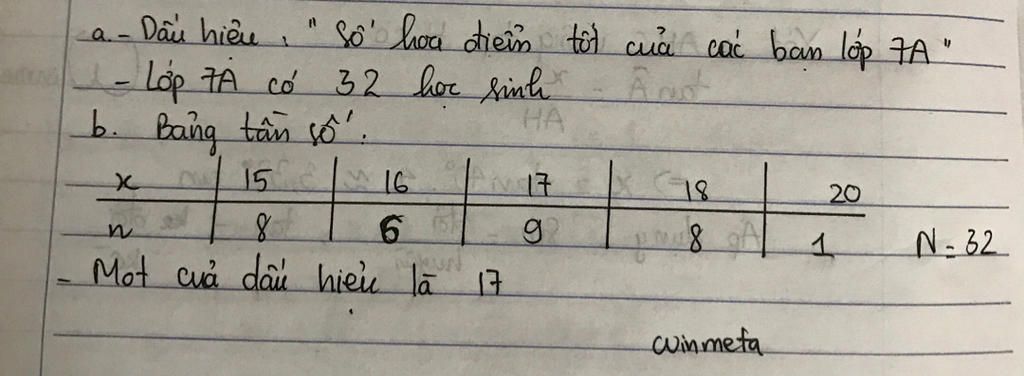 a. - Dấu hiệu : "Số hoa điểm tốt của các bạn lớp 7A"
- Lớp 7A có 32 học sinh
b. Bảng tần số :
x 15 16 17 18 20
n 8 6 9 8 1 N = 32
- Mot của dấu hiệu là 17
winmeta